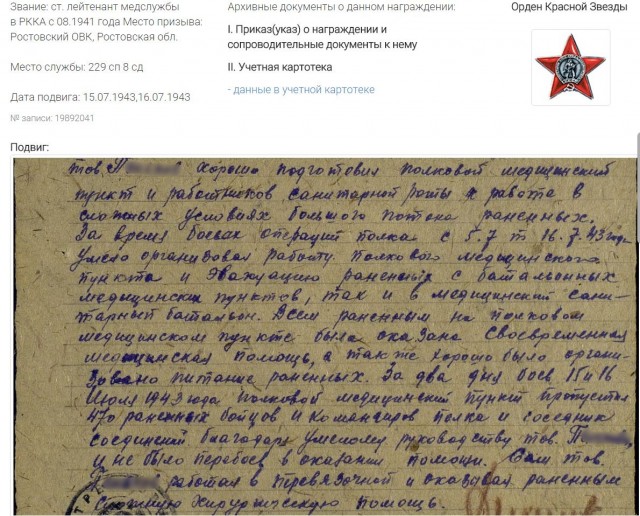 Звание: ст. лейтенант медслужбы
в РККА с 08.1941 года Место призыва:
Ростовский ОВК, Ростовская обл.
Место службы: 229 сп 8 сд
Дата подвига: 15.07.1943,16.07.1943
№ записи: 19892041
Архивные документы о данном награждении:
I. Приказ(указ) о награждении и
сопроводительные документы к нему
II. Учетная картотека
- данные в учетной картотеке
Орден Красной Звезды
Подвиг:
тов. П хорошо подготовил полковой медицинский
пункт и работников санитарной роты к работа в
сложных условиях большого потока раненных.
За время боевых операций полка с 5.7 т 16.7.43 года
умело организовал работу полкового медицинского
пункта и эвакуацию раненных с батальонных
медицинских пунктов, так и в медицинский сани-
тарный батальон. Всем раненным на полковом
медицинском пункте была оказана своевременная
медицинская помощь, а так же хорошо было органи-
зовано питание раненных. За два дня боев 15 и 16
июля 1943 года полковой медицинский пункт пропустил
470 раненных бойцов и командиров полка и соседних
соединений благодаря умелому руководству тов. П
и не было перебоев в оказании помощи. Сам тов.
работал в перевязочной и оказывал раненным
сложную хирургическую помощь.